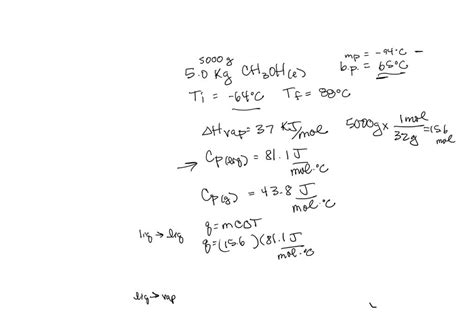 5000 g
5.0 Kg CH3OH(l)
mp = -94°C -
b.p. = 65°C
Ti = -64°C Tf = 88°C
ΔHvap = 37 KJ/mol
5000g x 1mol/32g = 156 mol
→ Cp(liq) = 81.1 J/mol·°C
Cp(g) = 43.8 J/mol·°C
q = mCΔT
liq → liq q = (15.6)(81.1 J/mol·°C
liq → vap